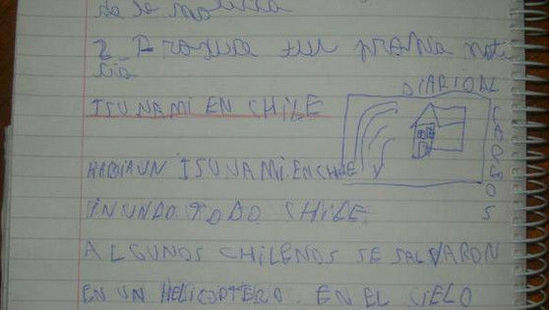 de la noticia
2 Produce tu propia noti
cia
DIARIO DE
TSUNAMI EN CHILE
HABIA UN TSUNAMI EN CHILE Y
INUNDO TODO CHILE
ALGUNOS CHILENOS SE SALVARON
EN UN HELICOPTERO. EN EL CIELO